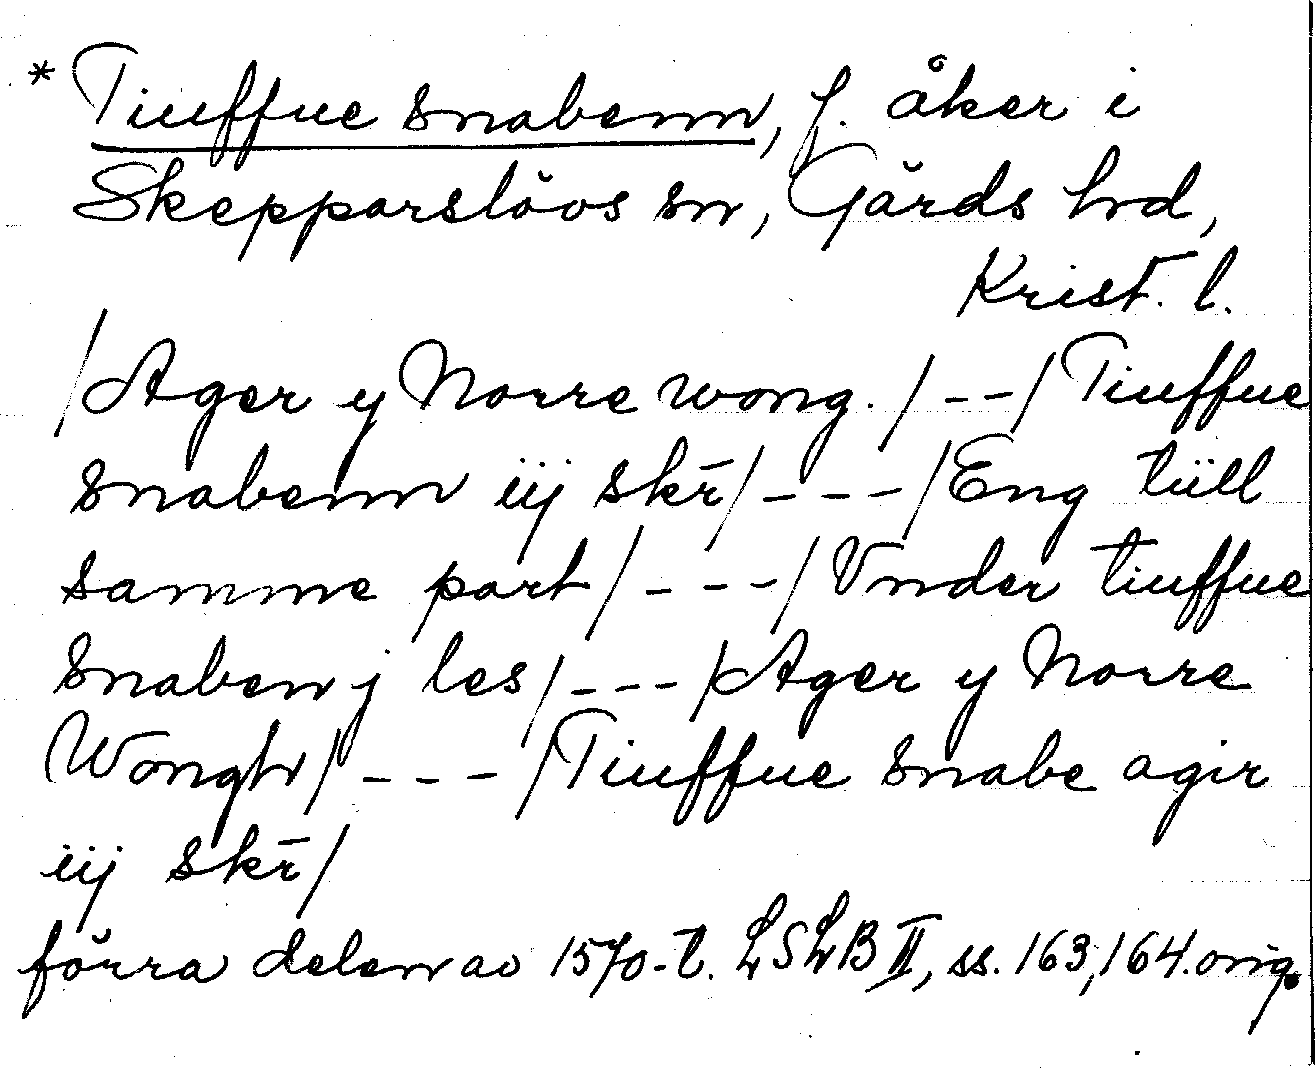 * Tiuffue snabenn, f. åker i
Skepparslövs sn, Gärds hrd,
Krist. l.
/Ager y Norre wong./ -- /Tiuffue
snabenn iij skr̄/ --- /Eng till
samme part/ --- /Vnder tiuffue
snaben j les/ --- /Ager y Norre
Wongh/ --- /Tiuffue snabe agir
iij skr̄/
förra delen av 1570-t. LSLB II, ss. 163, 164. orig.